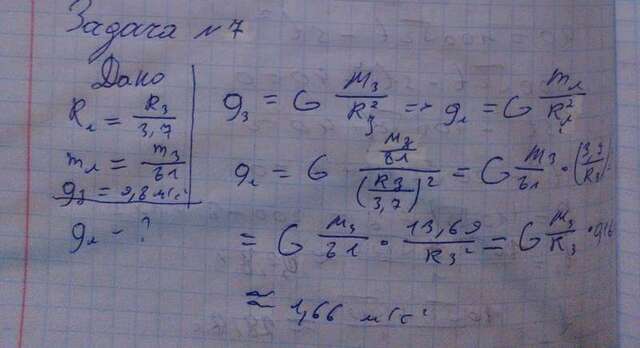 Задача №7
Дано
Rл = Rз/3,7
mл = mз/81
gз = 9,8 м/с²
gл - ?
gз = G Mз/Rз² => gл = G mл/Rл²
gл = G (Mз/81)/(Rз/3,7)² = G Mз/81 · (3,7/Rз)²
= G Mз/81 · 13,69/Rз² = G Mз/Rз · 0,16
≈ 1,66 м/с²